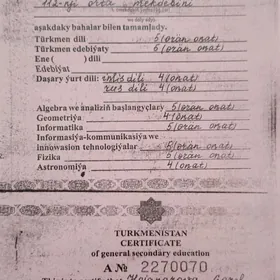 112-nji orta mekdebini
aşakdaky bahalar bilen tamamlady.
Türkmen dili 5(örän oňat)
Türkmen edebiýaty 5(örän oňat)
Ene ( ) dili
Edebiýat
Daşary ýurt dili: iňlis dili 4(oňat)
rus dili 4(oňat)
Algebra we analiziň başlangyçlary 5(örän oňat)
Geometriýa 4(oňat)
Informatika 5(örän oňat)
Informasiýa-kommunikasiýa we
innowasion tehnologiýalar 5(örän oňat)
Fizika 5(örän oňat)
Astronomiýa 4(oňat)
TURKMENISTAN
CERTIFICATE
of general secondary education
A № 2270070